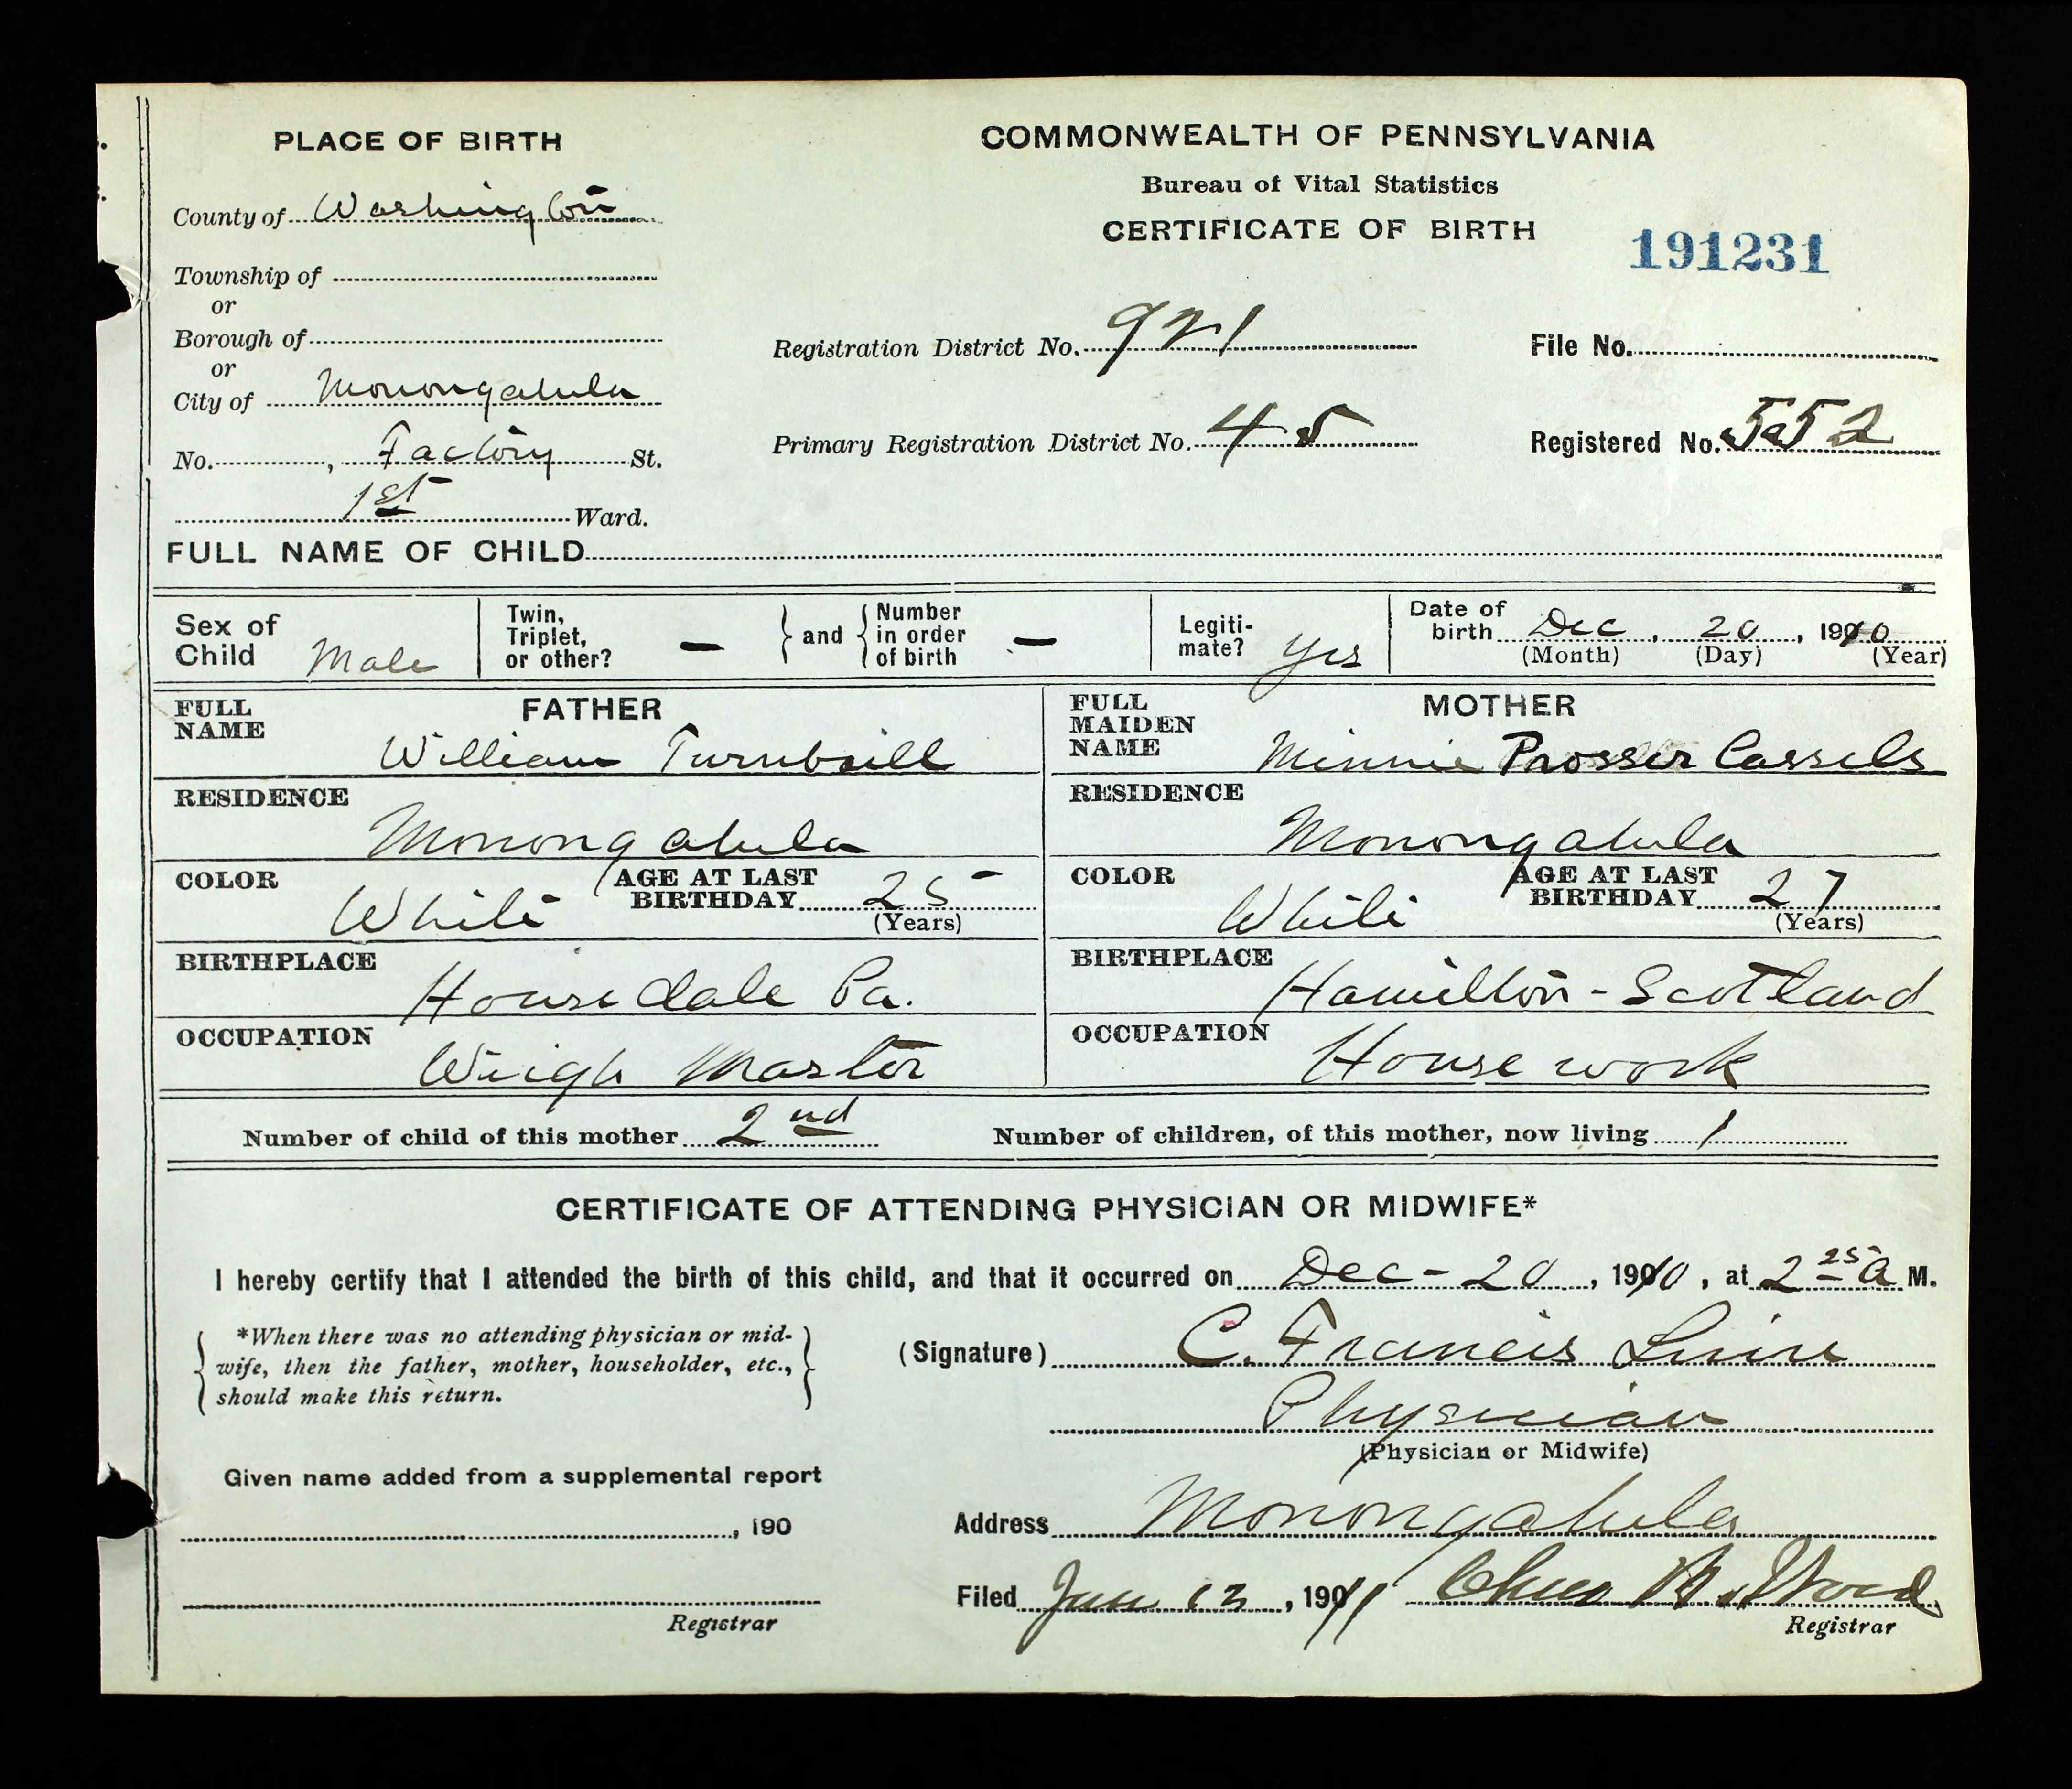 PLACE OF BIRTH
County of Washington
Township of
or
Borough of
or
City of Monongahela
No. , Factory St.
1st Ward.
COMMONWEALTH OF PENNSYLVANIA
Bureau of Vital Statistics
CERTIFICATE OF BIRTH
191231
Registration District No. 921
File No.
Primary Registration District No. 45
Registered No. 552
FULL NAME OF CHILD
Sex of Child Male
Twin, Triplet, or other? — } and { Number in order of birth —
Legiti- mate? Yes
Date of birth Dec , 20 , 1910
(Month) (Day) (Year)
FATHER
FULL NAME William Turnbull
RESIDENCE Monongahela
COLOR White AGE AT LAST BIRTHDAY 25 (Years)
BIRTHPLACE Housedale Pa.
OCCUPATION Weigh Master
MOTHER
FULL MAIDEN NAME Minnie Prosser Cassels
RESIDENCE Monongahela
COLOR White AGE AT LAST BIRTHDAY 27 (Years)
BIRTHPLACE Hamilton - Scotland
OCCUPATION House work
Number of child of this mother 2nd Number of children, of this mother, now living 1
CERTIFICATE OF ATTENDING PHYSICIAN OR MIDWIFE*
I hereby certify that I attended the birth of this child, and that it occurred on Dec - 20 , 1910 , at 2 25 A M.
*When there was no attending physician or mid-
wife, then the father, mother, householder, etc.,
should make this return.
(Signature) C. Francis
Physician
(Physician or Midwife)
Given name added from a supplemental report
, 190
Registrar
Address Monongahela
Filed Jan 13 , 1911 Wood
Registrar